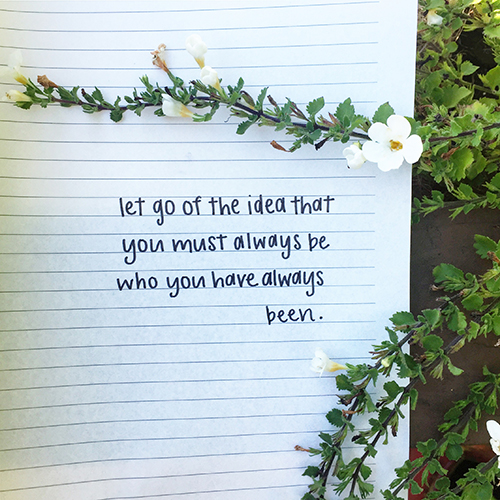 let go of the idea that
you must always be
who you have always
been.